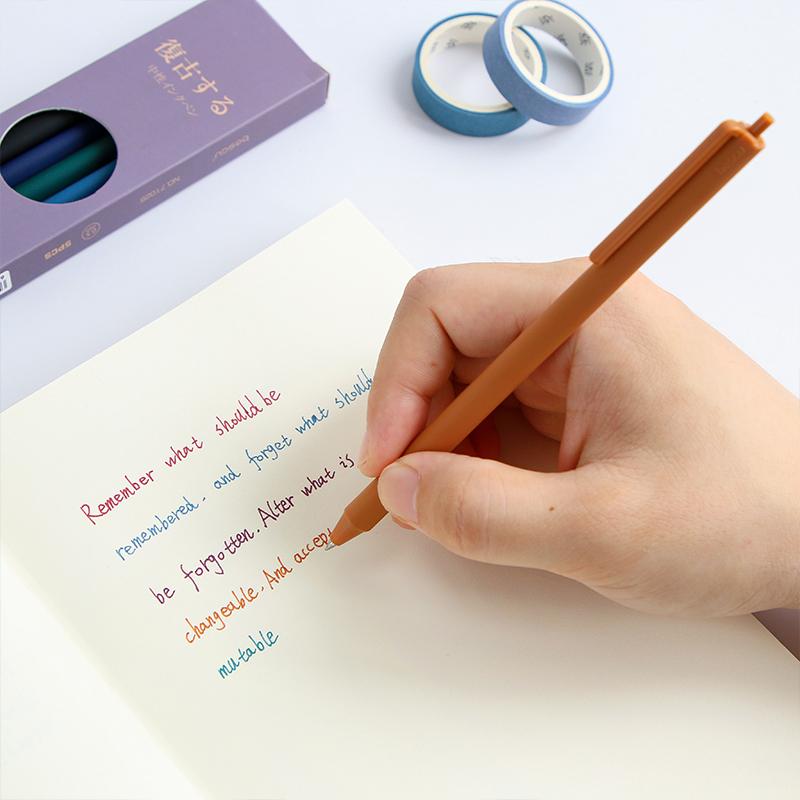 復古する
中性インクペン
basou
NO.71025
5PCS
Remember what should be
remembered. and forget what should
be forgotten. Alter what is
changeable. And accept
mutable